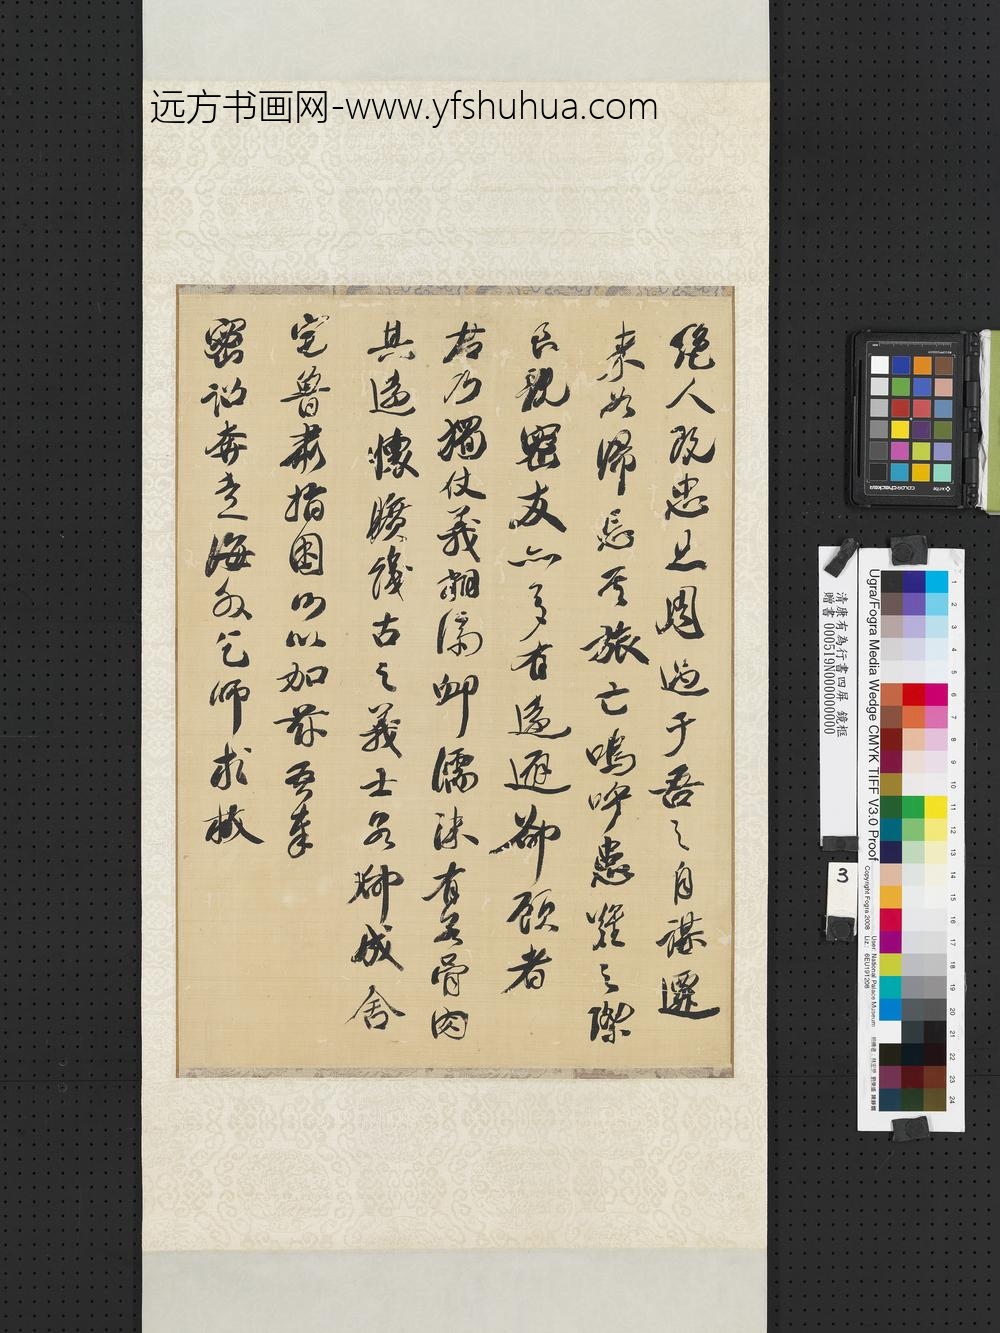 远方书画网-www.yfshuhua.com
絕人改患且周過于吾之自謀遷
来如歸忘其旅亡嗚呼患難之際
良親密友亦多有遠避却顧者
若乃獨仗義相濡卹濡沫有若骨肉
其遠懷贖錢古之義士名卿成舍
定魯肅指囷何以加茲吾奉
密詔奔走海外乞師求救
清康有為行書四屏 鏡框
贈書 000519N000000000
3
Ugra/Fogra Media Wedge CMYK TIFF V3.0 Proof
Copyright Fogra 2008
User: National Palace Museum
Liz.: 6EU191208
1 2 3 4 5 6 7 8 9 10 11 12 13 14 15 16 17 18 19 20 21 22 23 24